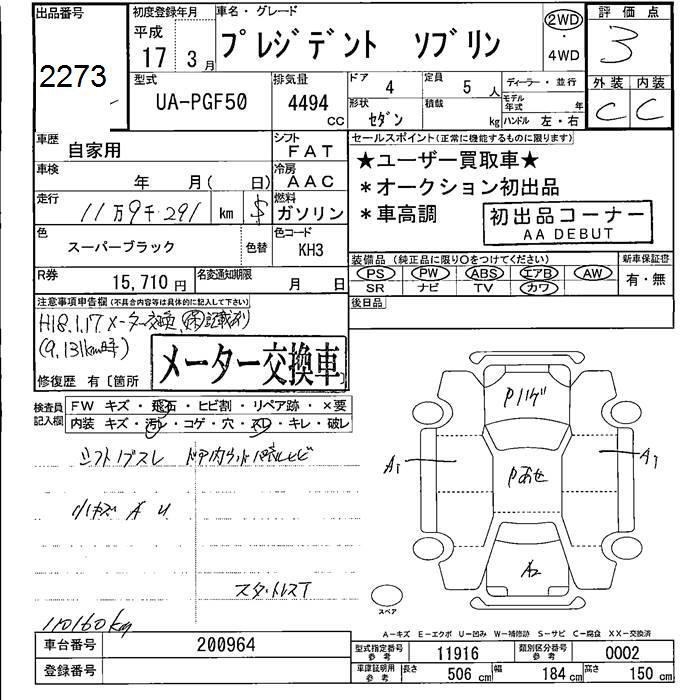 出品番号
2273
初度登録年月
平成
17 3月
車名・グレード
プレジデント ソブリン
2WD
・
4WD
評価点
3
外装 内装
C C
型式
UA-PGF50
排気量
4494
CC
ドア
4
定員
5人
形状
セダン
積載
kg
ディーラー・並行
モデル
年式 年
ハンドル 左・右
車歴
自家用
シフト
FAT
車検
年 月( 日)
冷房
AAC
走行
11万9千291 km $
燃料
ガソリン
色
スーパーブラック
色替
色コード
KH3
R券
15,710円
名変通知期限
月 日
セールスポイント(正常に機能するものに限ります)
★ユーザー買取車★
*オークション初出品
*車高調
初出品コーナー
AA DEBUT
装備品(純正品に限り○をつけてください)
PS PW ABS エアB AW
SR ナビ TV カワ
新車保証書
有・無
後日品
注意事項申告欄(不具合内容等は具体的に記入して下さい)
H18.1.17 メーター交換 記載有り
(9,131km時)
メーター交換車
修復歴 有〔箇所
検査員
記入欄
FW キズ・飛石・ヒビ割・リペア跡・×要
内装 キズ・汚レ・コゲ・穴・スレ・キレ・破レ
シフトノブスレ
小キズ A U
スタットレスT
110160kg
Pハゲ
A1
A1
Pあせ
A2
スペア
A-キズ E-エクボ U-凹み W-補修跡 S-サビ C-腐食 XX-交換済
車台番号
200964
登録番号
型式指定番号
参考
11916
類別区分番号
参考
0002
車庫証明用
参考
長さ
506 cm
幅
184 cm
高さ
150 cm